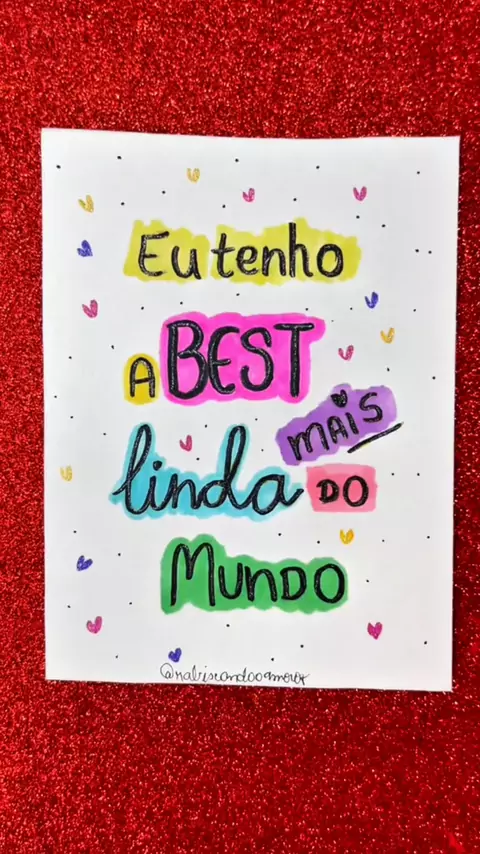 Eu tenho
A BEST
MAIS
linda DO
MUNDO